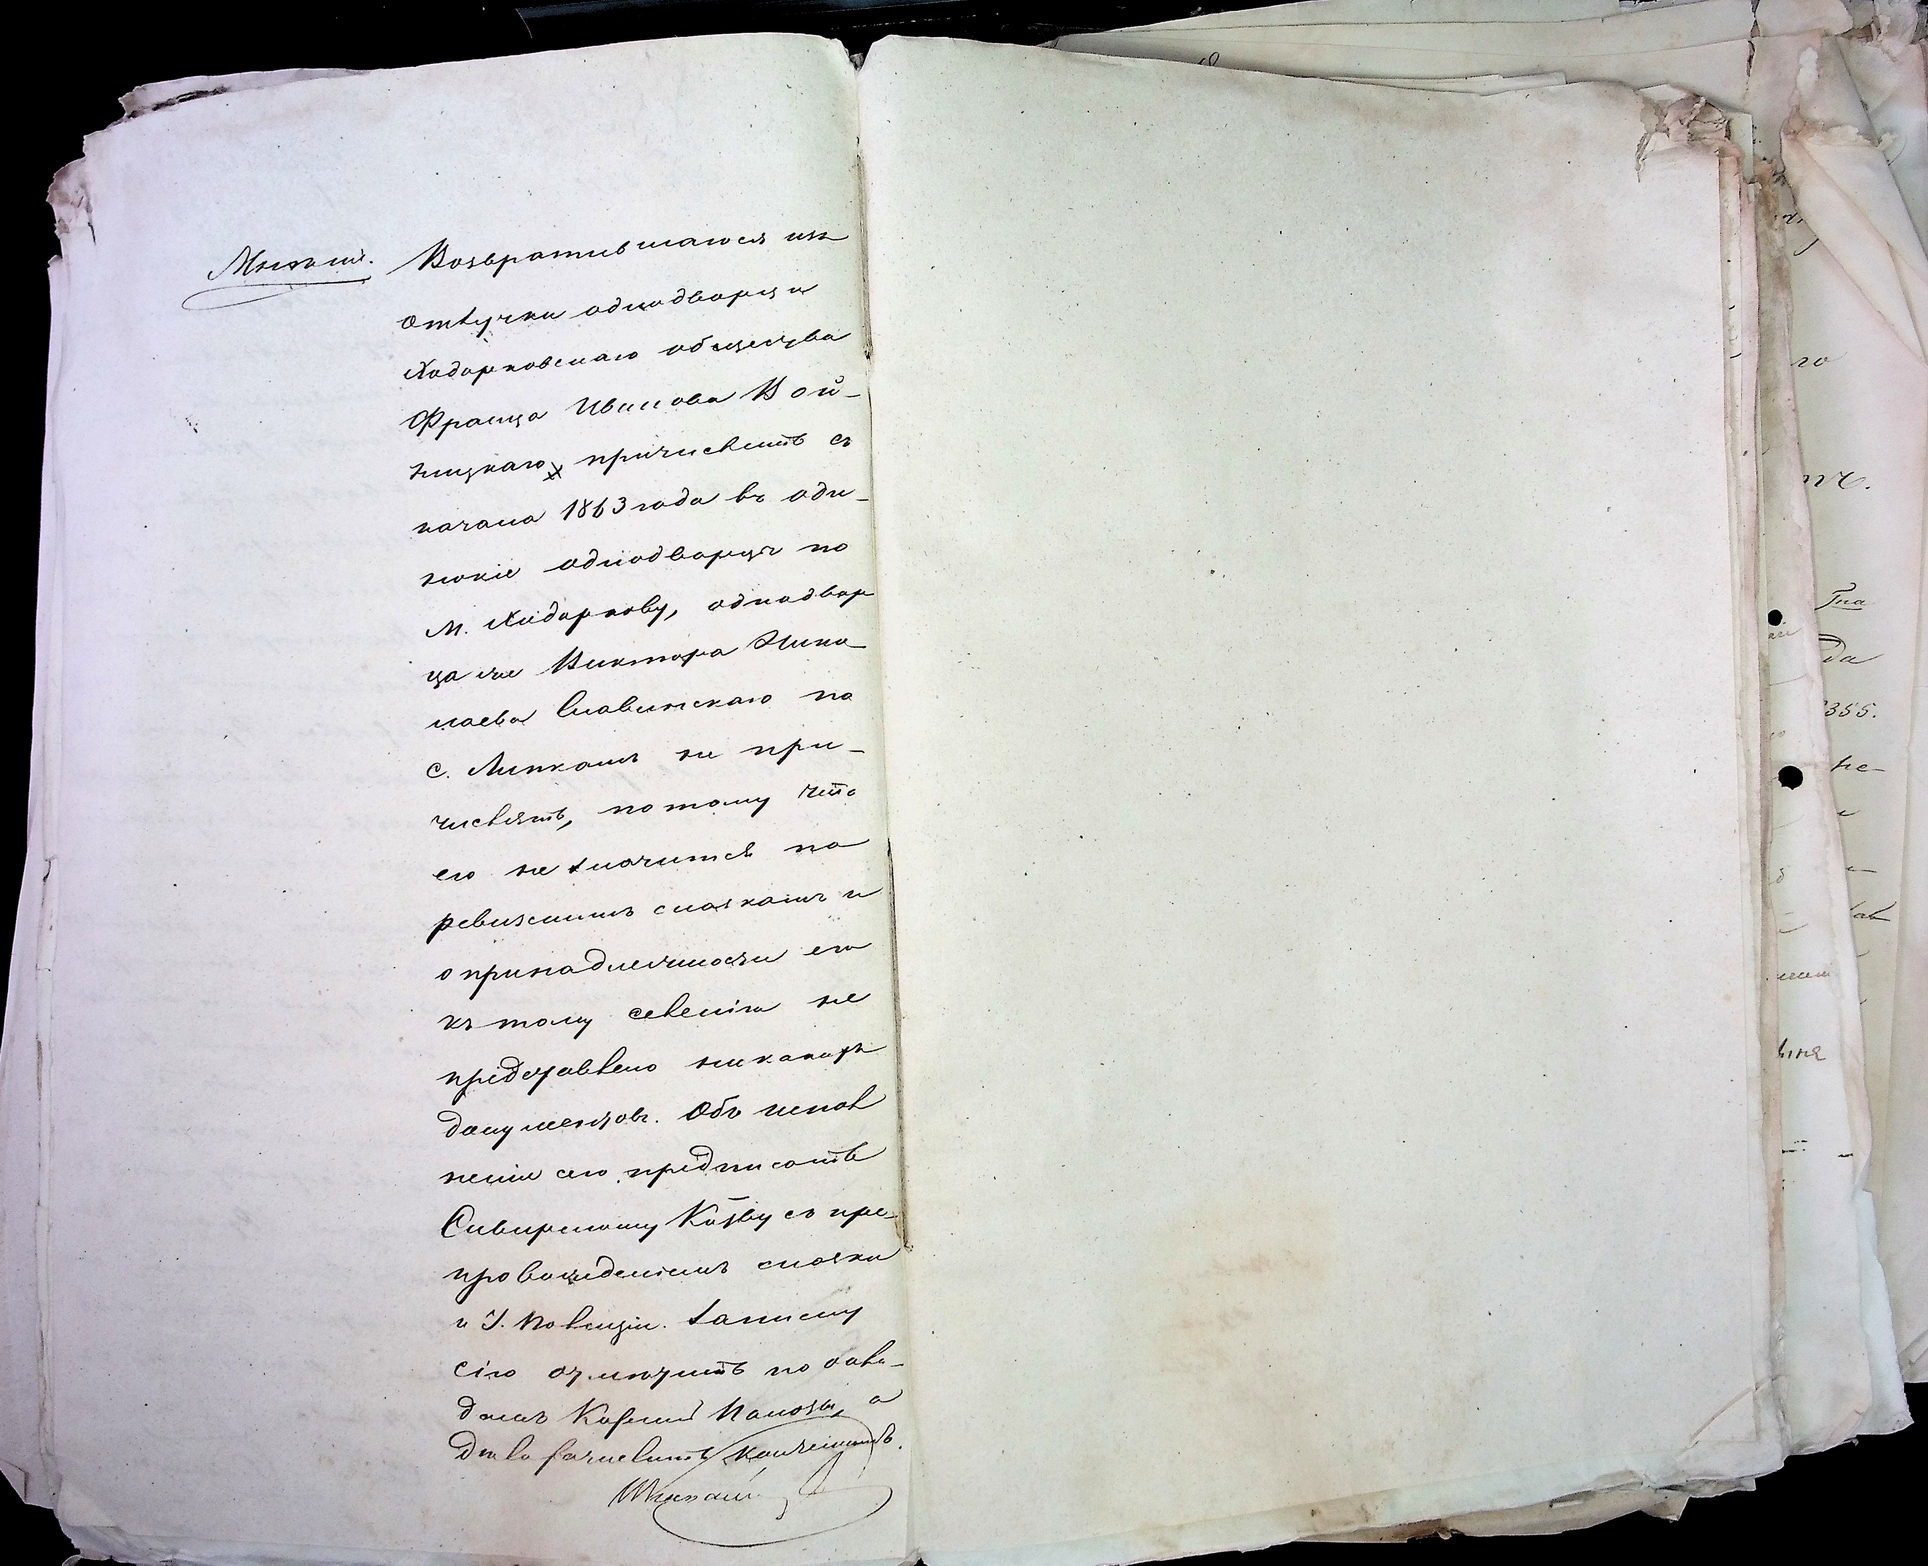 Мнѣніе. Возвратившагося изъ
отлучки однодворца
Ходорковскаго общества
Франца Иванова Вой-
ницкаго, причислить съ
начала 1863 года въ оди-
нокіе однодворцы по
М. Ходоркову, однодвор
ца же Виктора Нико
лаева Славинскаго по
с. Липкамъ не при-
числять, потому что
его не значится по
ревизскимъ сказкамъ и
о принадлежности его
къ тому селенію не
представлено никакихъ
документовъ. Объ испол
неніи сего предписать
Сквирскому Каз̅ву съ пре-
провожденіемъ сказки
и J. Записку
сію отмѣтить по окла-
дамъ Казенной Палаты, а
дѣло зачислить конченнымъ.